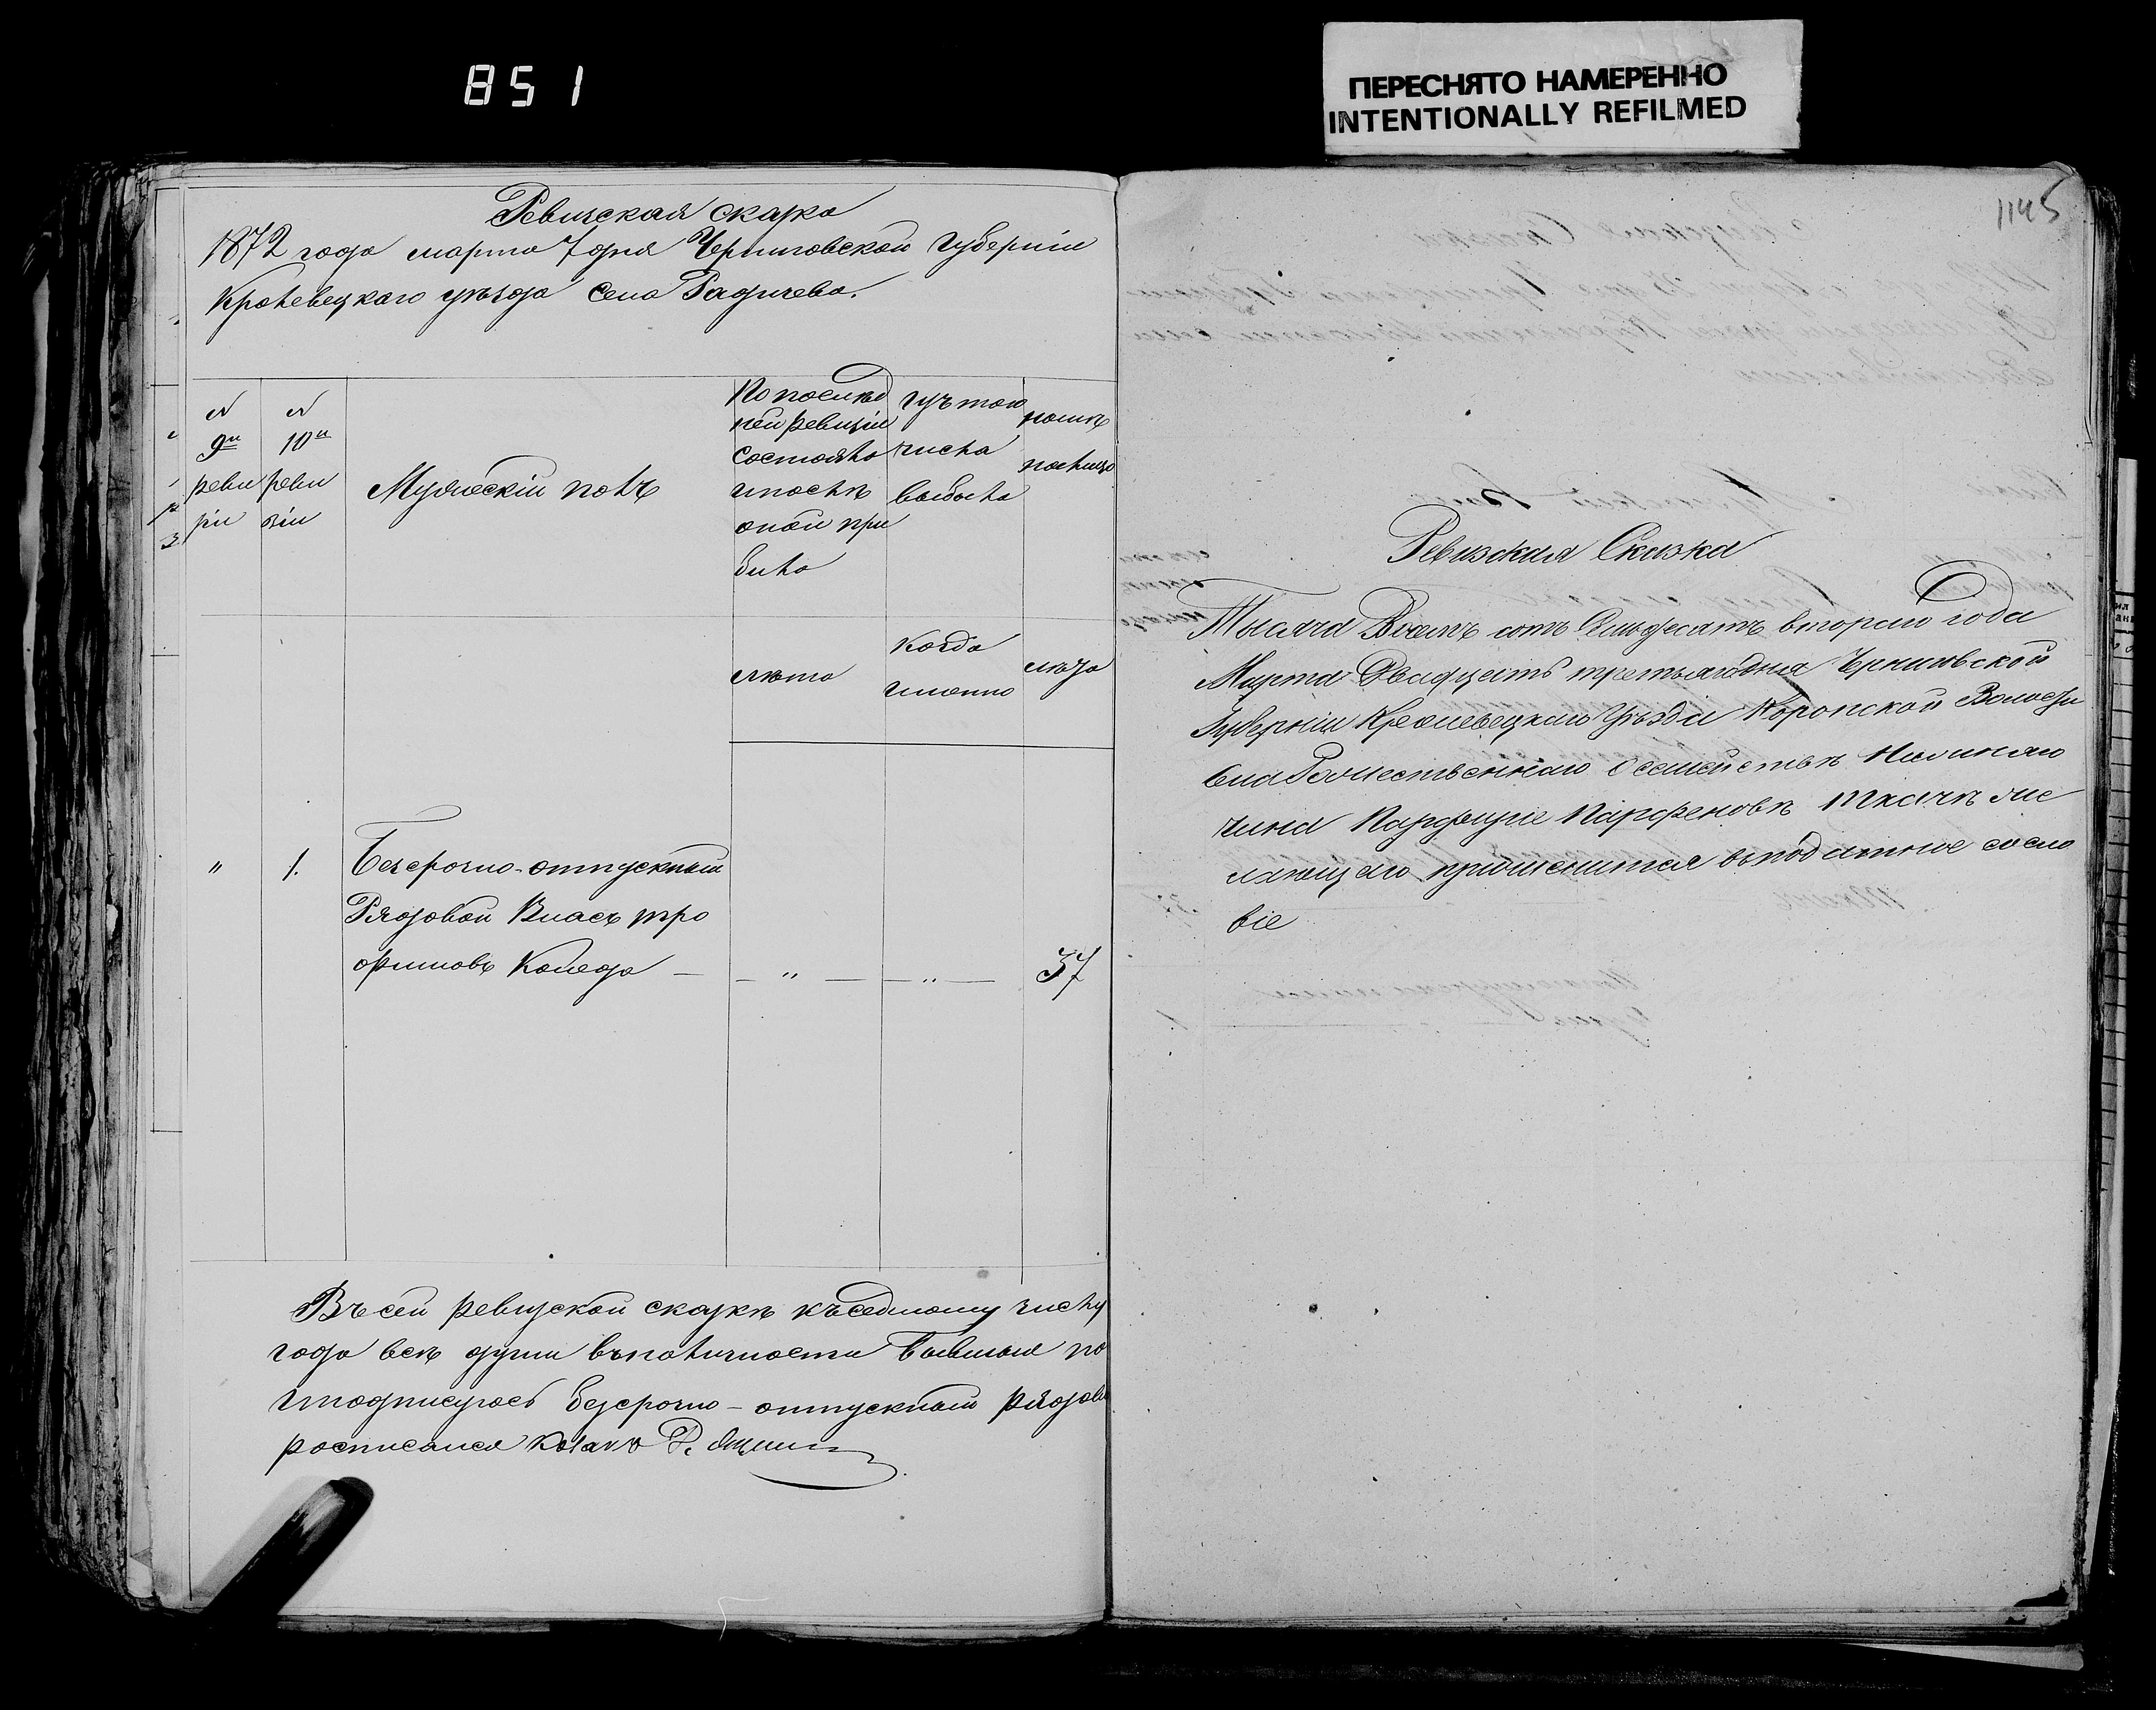 851
ПЕРЕСНЯТО НАМЕРЕННО
INTENTIONALLY REFILMED
Ревизская сказка
1872 года марта 7 дня Черниговской губерніи
Кролевецкаго уѣзда села Радичева.
№ 9й ревизіи
№ 10й ревизіи
Мужескій полъ
По послѣд
ней ревизіи
состояло
и послѣ
оной при
было
изъ того
числа
выбыло
нынѣ
налицо
лѣта
когда
именно
лѣта
"
1.
Безсрочно-отпускный
Рядовой Власъ тро
фимовъ Коледа
"
"
37
Въ сей ревизской сказкѣ къ седьмому числу
года всѣ души въ наличности бывшыя по
безсрочно-отпускный рядово
росписался козакъ
1145
Ревизская Сказка
Тысяча Восемъ сотъ Семьдесятъ втораго Года
Марта Двадцать третьяго дня Черниговской
Губерніи Кролевецкаго Уѣзда Коропской Волости
Села Рождественнаго О семействѣ Нижняго
чина Парфеновѣ Ткачѣ же
лающаго причислится въ податное сосло
віе